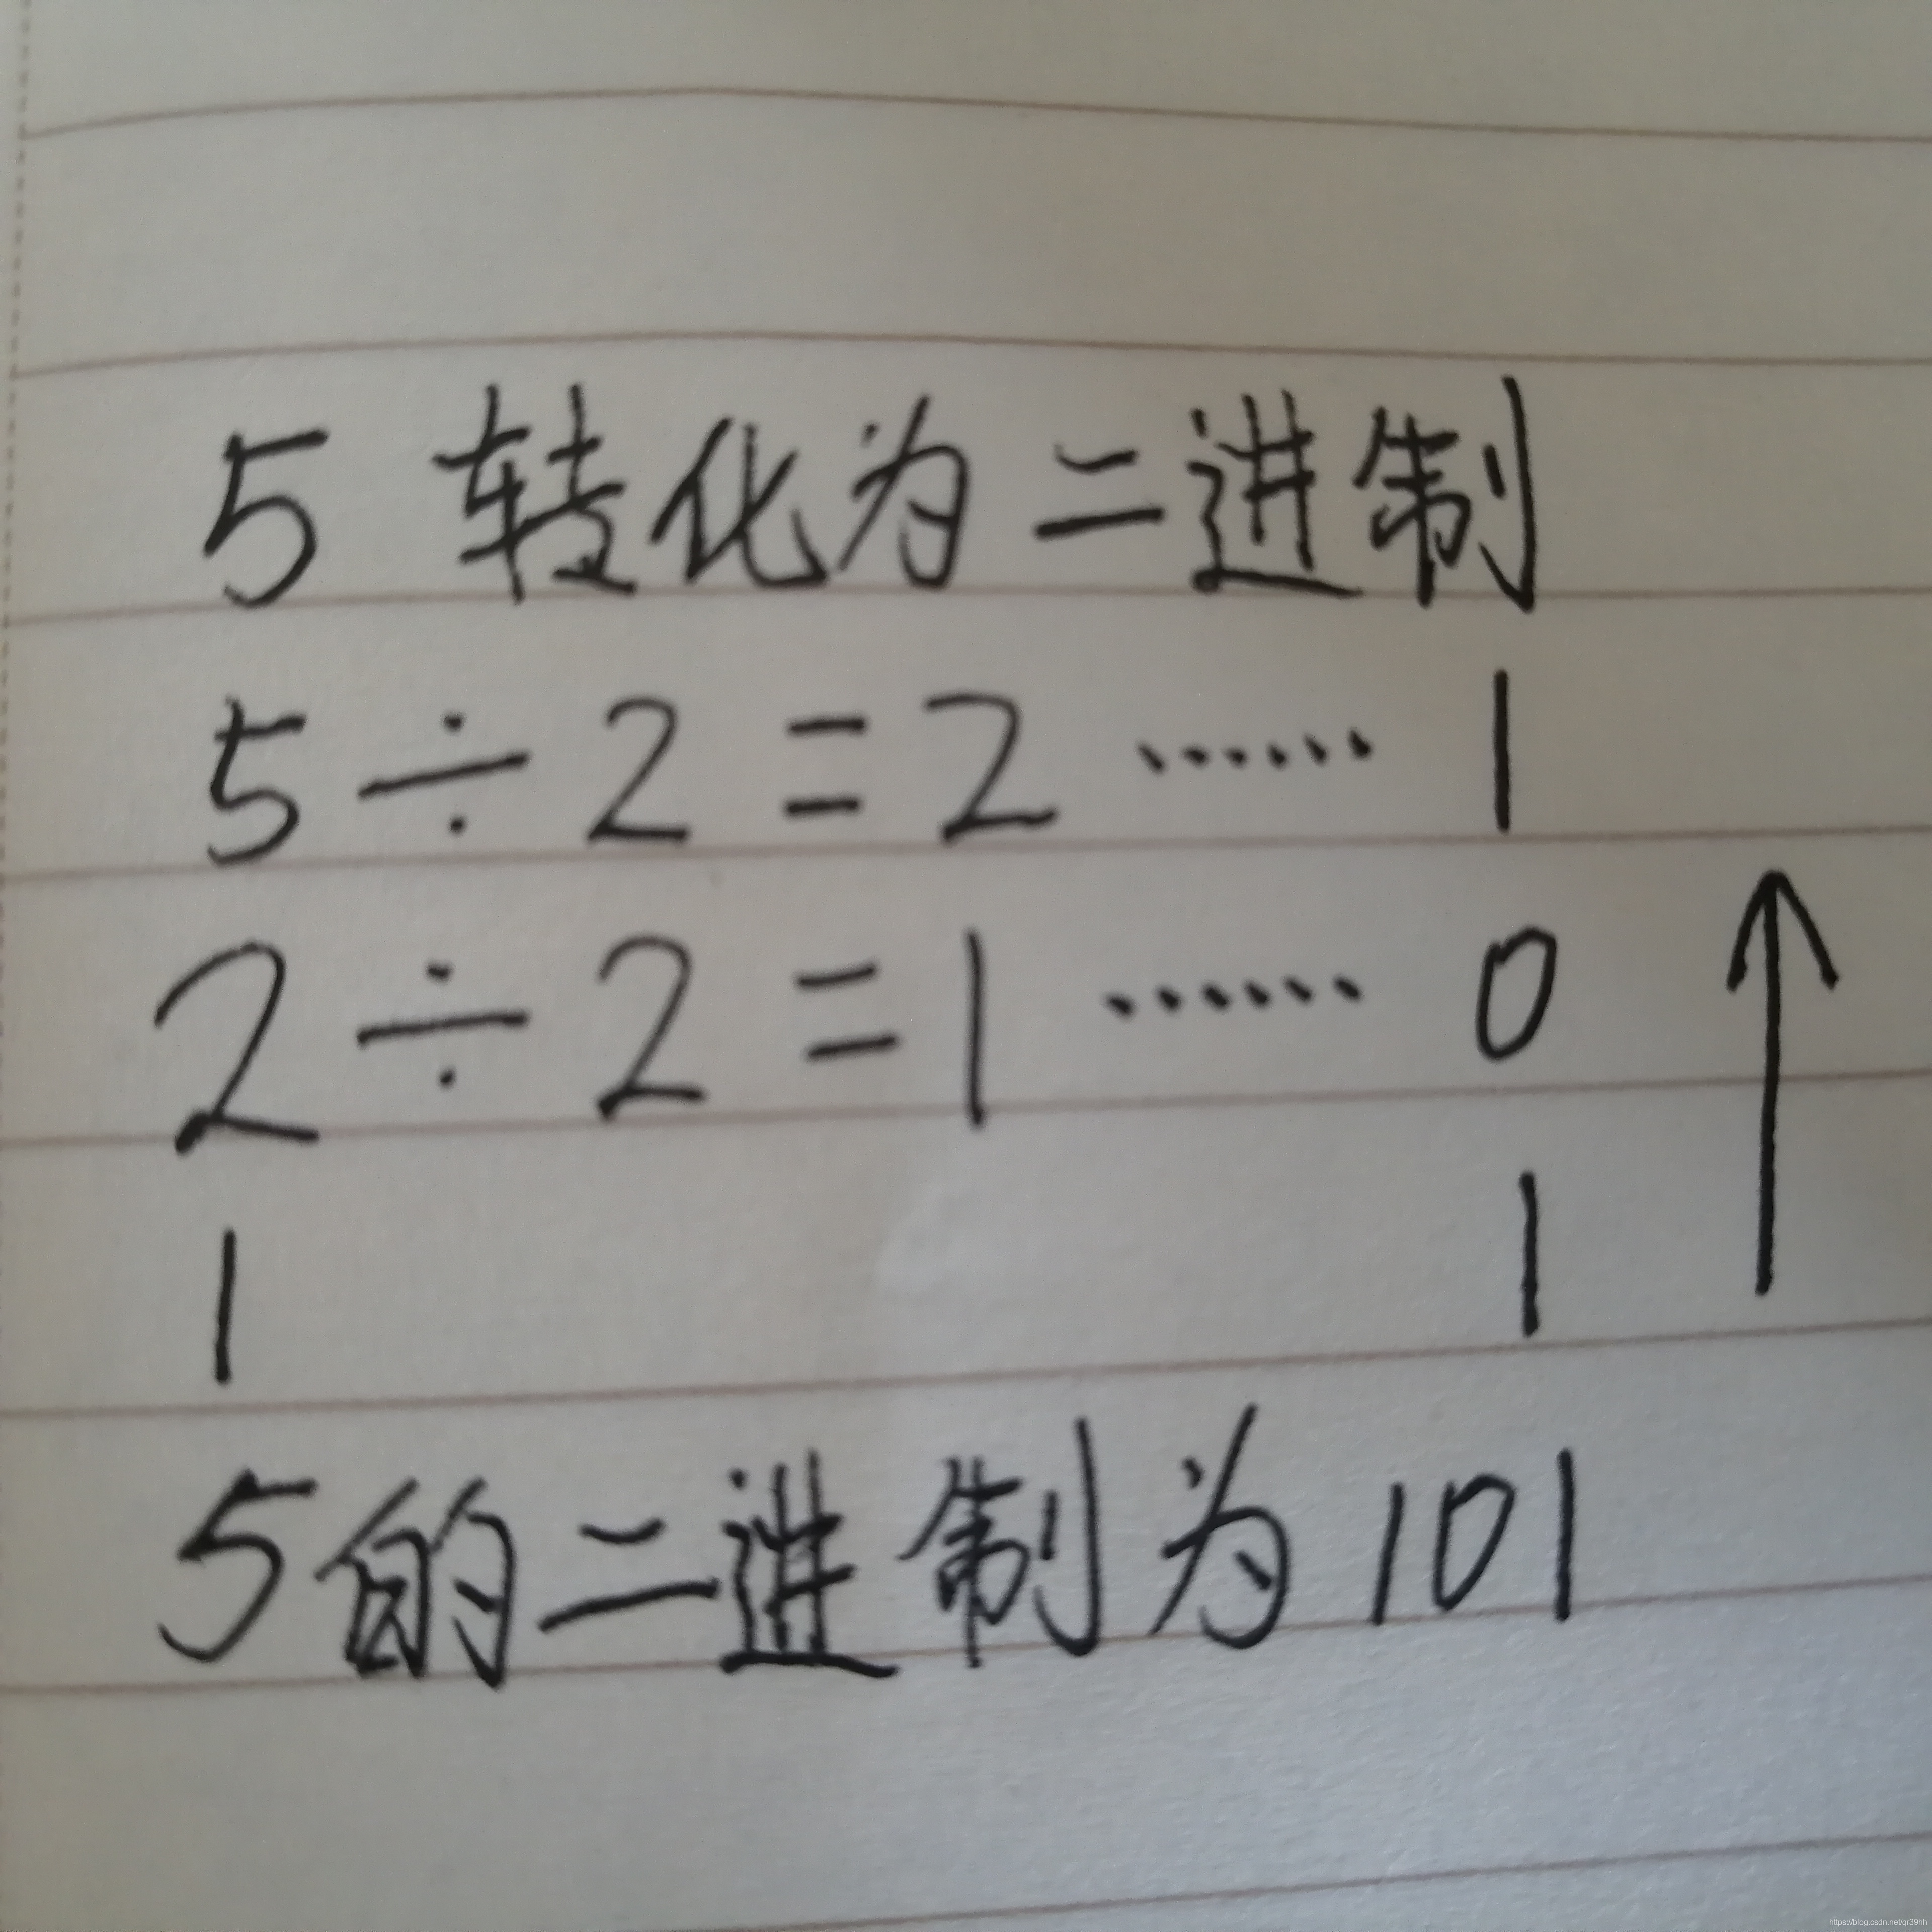 5 转化为二进制
5÷2=2……1
2÷2=1……0
1 1
5的二进制为101
https://blog.csdn.net/qr39hh